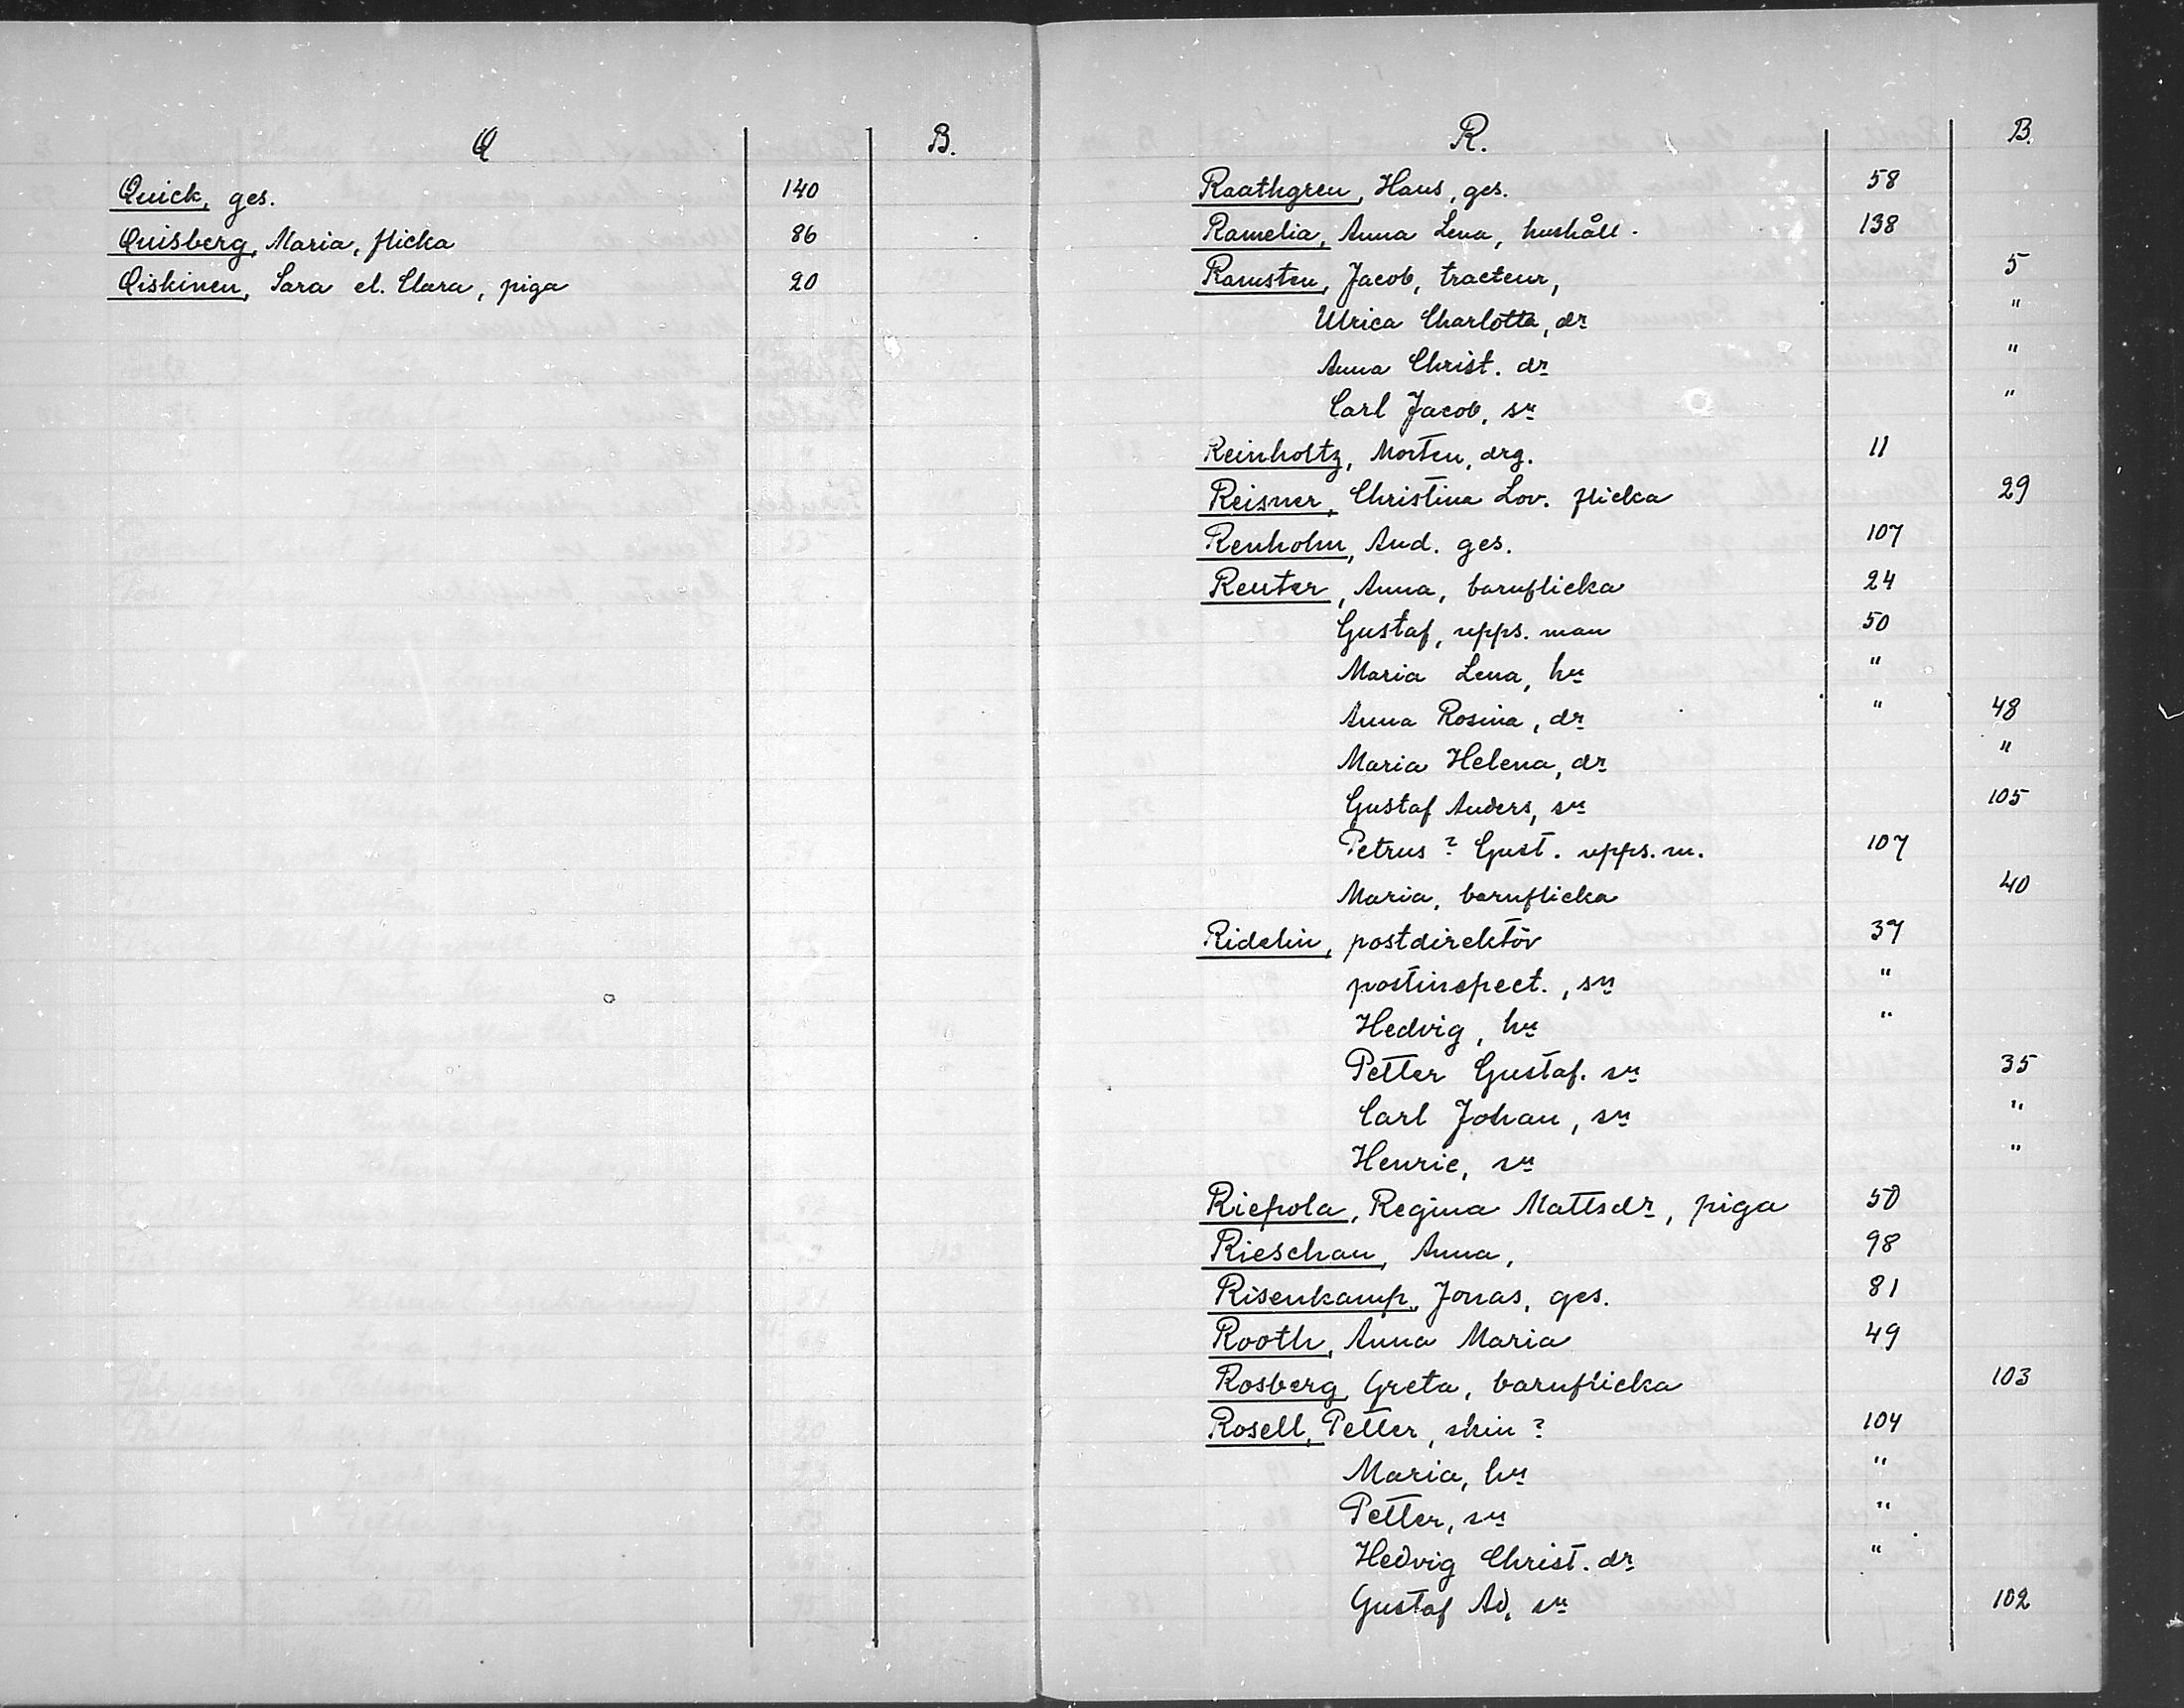 Q B.
Quick, ges. 140
Quisberg, Maria, flicka 86
Qiskinen, Sara el. Clara, piga 20
R. B.
Raathgren, Hans, ges. 58
Ramelia, Anna Lena, hushåll. 138
Ramsten, Jacob, tracteur, 5
Ulrica Charlotta, dr "
Anna Christ. dr "
Carl Jacob, sn "
Reinholtz, Morten, drg. 11
Reisner, Christina Lov. flicka 29
Renholm, And. ges. 107
Reuter, Anna, barnflicka 24
Gustaf, upps. man 50
Maria Lena, hu "
Anna Rosina, dr " 48
Maria Helena, dr "
Gustaf Anders, sn 105
Petrus ? Gust. upps. m. 107
Maria, barnflicka 40
Ridelin, postdirektör 37
postinspect., sn "
Hedvig, hu "
Petter Gustaf. sn 35
Carl Johan, sn "
Henric, sn "
Riepola, Regina Mattsdr, piga 50
Rieschan, Anna, 98
Risenkamp, Jonas, ges. 81
Rooth, Anna Maria 49
Rosberg, Greta, barnflicka 103
Rosell, Petter, skin ? 104
Maria, hu "
Petter, sn "
Hedvig Christ. dr "
Gustaf Ad, sn 102